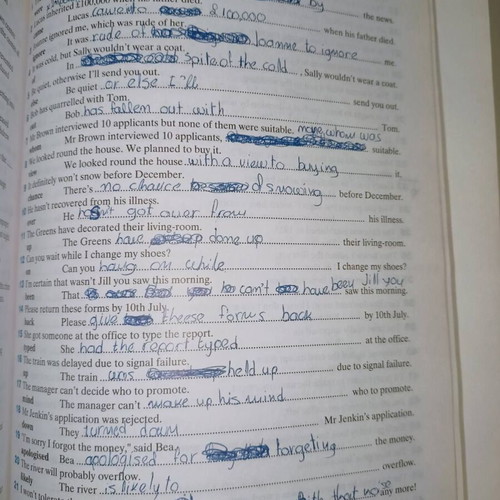 by the news.
inherited £100,000 when his father died.
Lucas came to £100,000 when his father died.
ignored me, which was rude of her.
It was rude of Joanne to ignore me.
cold, but Sally wouldn't wear a coat.
In spite of the cold , Sally wouldn't wear a coat.
quiet, otherwise I'll send you out.
Be quiet or else I'll send you out.
Bob has quarrelled with Tom.
Bob has fallen out with Tom.
Mr Brown interviewed 10 applicants but none of them were suitable.
whom Mr Brown interviewed 10 applicants, none whom was suitable.
We looked round the house. We planned to buy it.
view We looked round the house with a view to buying it.
It definitely won't snow before December.
chance There's no chance of snowing before December.
10 He hasn't recovered from his illness.
over He hasn't got over from his illness.
11 The Greens have decorated their living-room.
up The Greens have done up their living-room.
12 Can you wait while I change my shoes?
on Can you hang on while I change my shoes?
13 I'm certain that wasn't Jill you saw this morning.
been That can't have been Jill you saw this morning.
14 Please return these forms by 10th July.
back Please give theese forms back by 10th July.
15 She got someone at the office to type the report.
typed She had the report typed at the office.
16 The train was delayed due to signal failure.
up The train was held up due to signal failure.
17 The manager can't decide who to promote.
mind The manager can't make up his mind who to promote.
18 Mr Jenkin's application was rejected.
down They turned down Mr Jenkin's application.
19 "I'm sorry I forgot the money," said Bea.
apologised Bea apologised for forgeting the money.
20 The river will probably overflow.
likely The river is likely to overflow.
21 I won't tolerate that noise any more!